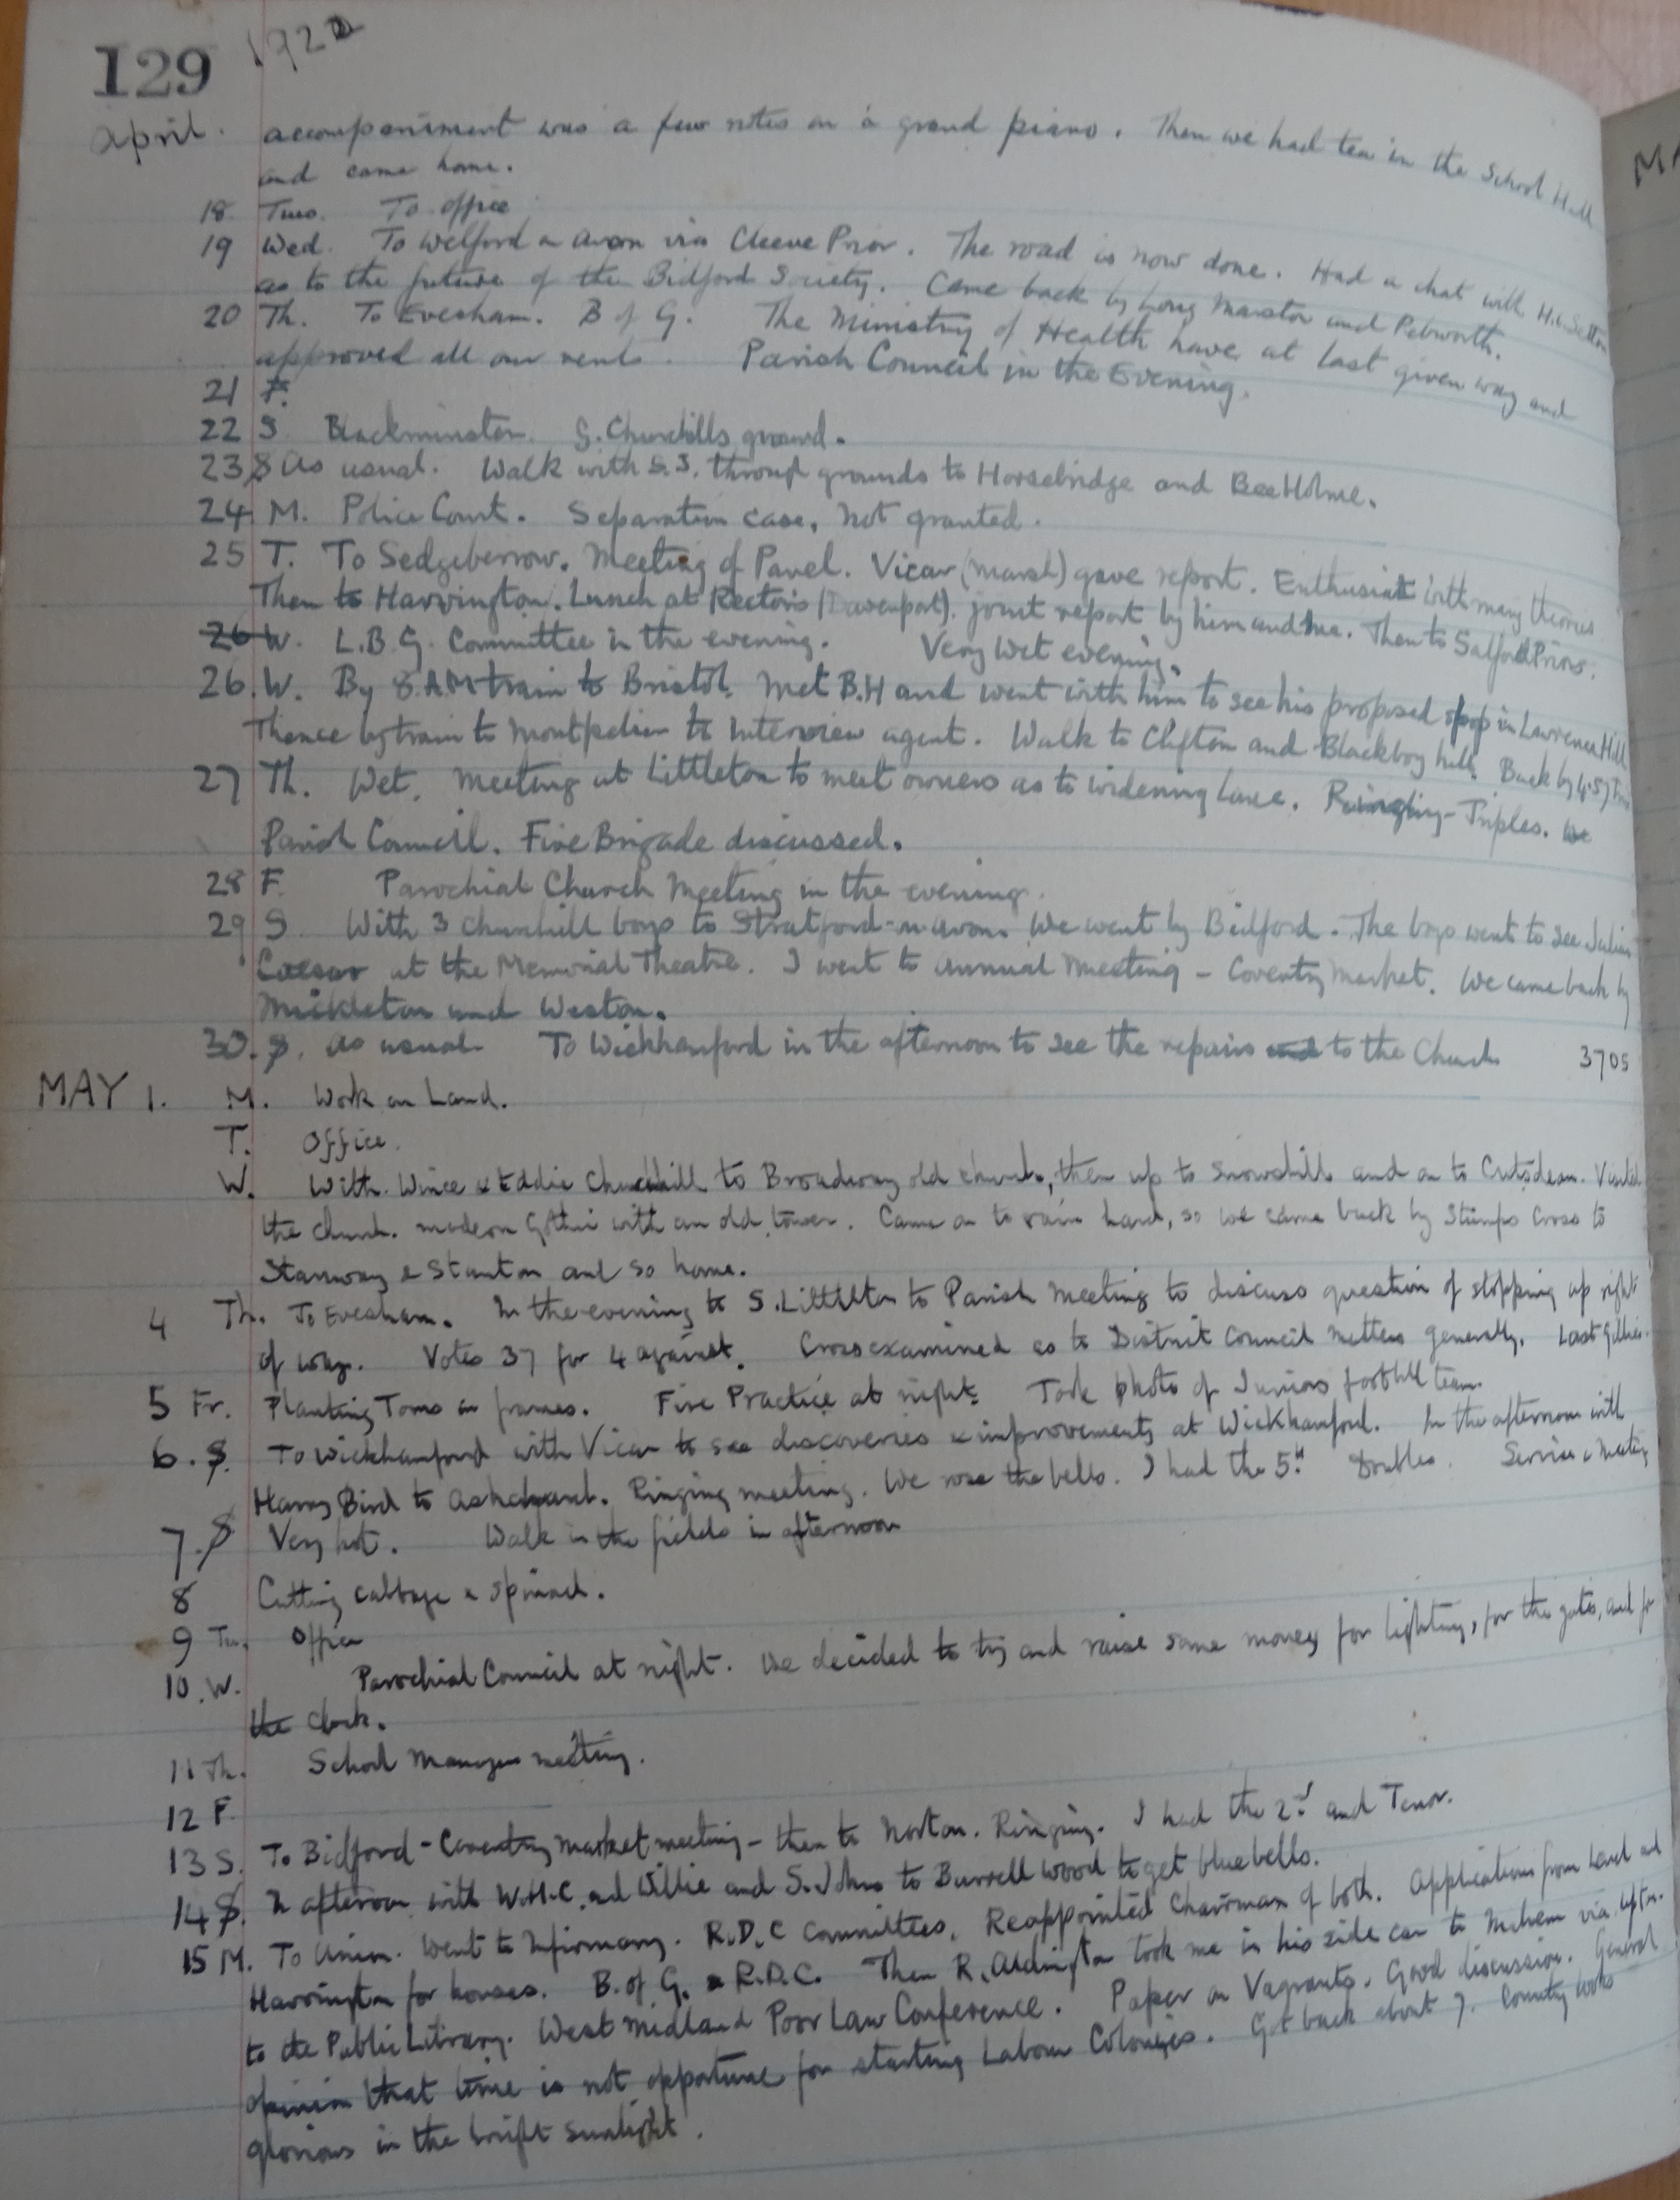 129 1922
April. accompaniment was a few notes on a grand piano. Then we had tea in the School Hall
and came home.
18 Tues. To office
19 Wed. To Welford on Avon via Cleeve Prior. The road is now done. Had a chat with
as to the future of the Bidford Society. Came back by Long Marston and Pebworth.
20 Th. To Evesham. B of G. The Ministry of Health have at last given way and
approved all our rents. Parish Council in the Evening.
21 F.
22 S Blackminster. G. Churchills ground.
23 S As usual. Walk with S.J. through grounds to Horsebridge and Bee Holme.
24 M. Police Court. Separation case, not granted.
25 T. To Sedgeberrow. Meeting of Panel. Vicar (Marsh) gave report. Enthusiast with many theories
Then to Harvington. Lunch at Rectors (Davenport). joint report by him and me. Then to Salford Priors.
26 W. L.B.G. Committee in the evening. Very wet evening.
26. W. By 8.AM train to Bristol. Met B.H and went with him to see his proposed shop in Lawrence Hill
Thence by train to Montpelier to interview agent. Walk to Clifton and Blackboy hill. Back by 4.57
27 Th. Wet. Meeting at Littleton to meet owners as to widening lane. Ringing - Triples. We
Parish Council. Fire Brigade discussed.
28 F. Parochial Church Meeting in the evening.
29 S. With 3 Churchill boys to Stratford-on-Avon. We went by Bidford. The boys went to see Julius
Caesar at the Memorial Theatre. I went to Annual Meeting - Coventry Market. We came back by
Mickleton and Weston.
30. S. As usual. To Wickhamford in the afternoon to see the repairs and to the Church 370s
MAY 1. M. Work on Land.
T. Office.
W. With Wince & Eddie Churchill to Broadway old church, then up to Snowshill and on to Cutsdean. Visited
the church. modern Gothic with an old tower. Came on to rain hard, so we came back by Stumps Cross to
Stanway & Stanton and so home.
4 Th. To Evesham. In the evening to S. Littleton to Parish Meeting to discuss question of stopping up right
of way. Votes 37 for 4 against. Crossexamined as to District Council matters generally. Last
5 Fr. Planting Toms in frames. Fire Practice at night. Took photo of Juniors football team.
6. S. To Wickhamford with Vicar to see discoveries & improvements at Wickhamford. In the afternoon with
Harry Bird to Ashchurch. Ringing meeting. We rose the bells. I had the 5th Doubles. Service & Meeting
7. S Very hot. Walk in the fields in afternoon
8 Cutting cabbage & spinach.
9 Tu. Office
10. W. Parochial Council at night. We decided to try and raise some money for lighting, for the gates, and for
the clock.
11 Th. School Managers meeting.
12 F.
13 S. To Bidford - Coventry Market meeting - then to Norton. Ringing. I had the 2nd and Tenor.
14 S. In afternoon with W.H.C. and Willie and S. Johns to Burrell wood to get bluebells.
15 M. To Union. Went to Infirmary. R.D.C Committees. Reappointed Chairman of both. Applications from Lench and
Harvington for houses. B. of G. & R.D.C. Then R. Aldington took me in his side car to Malvern via Upton.
to the Public Library. West Midland Poor Law Conference. Paper on Vagrants. Good discussion. General
opinion that time is not opportune for starting Labour Colonies. Got back about 7. Country looks
glorious in the bright sunlight.